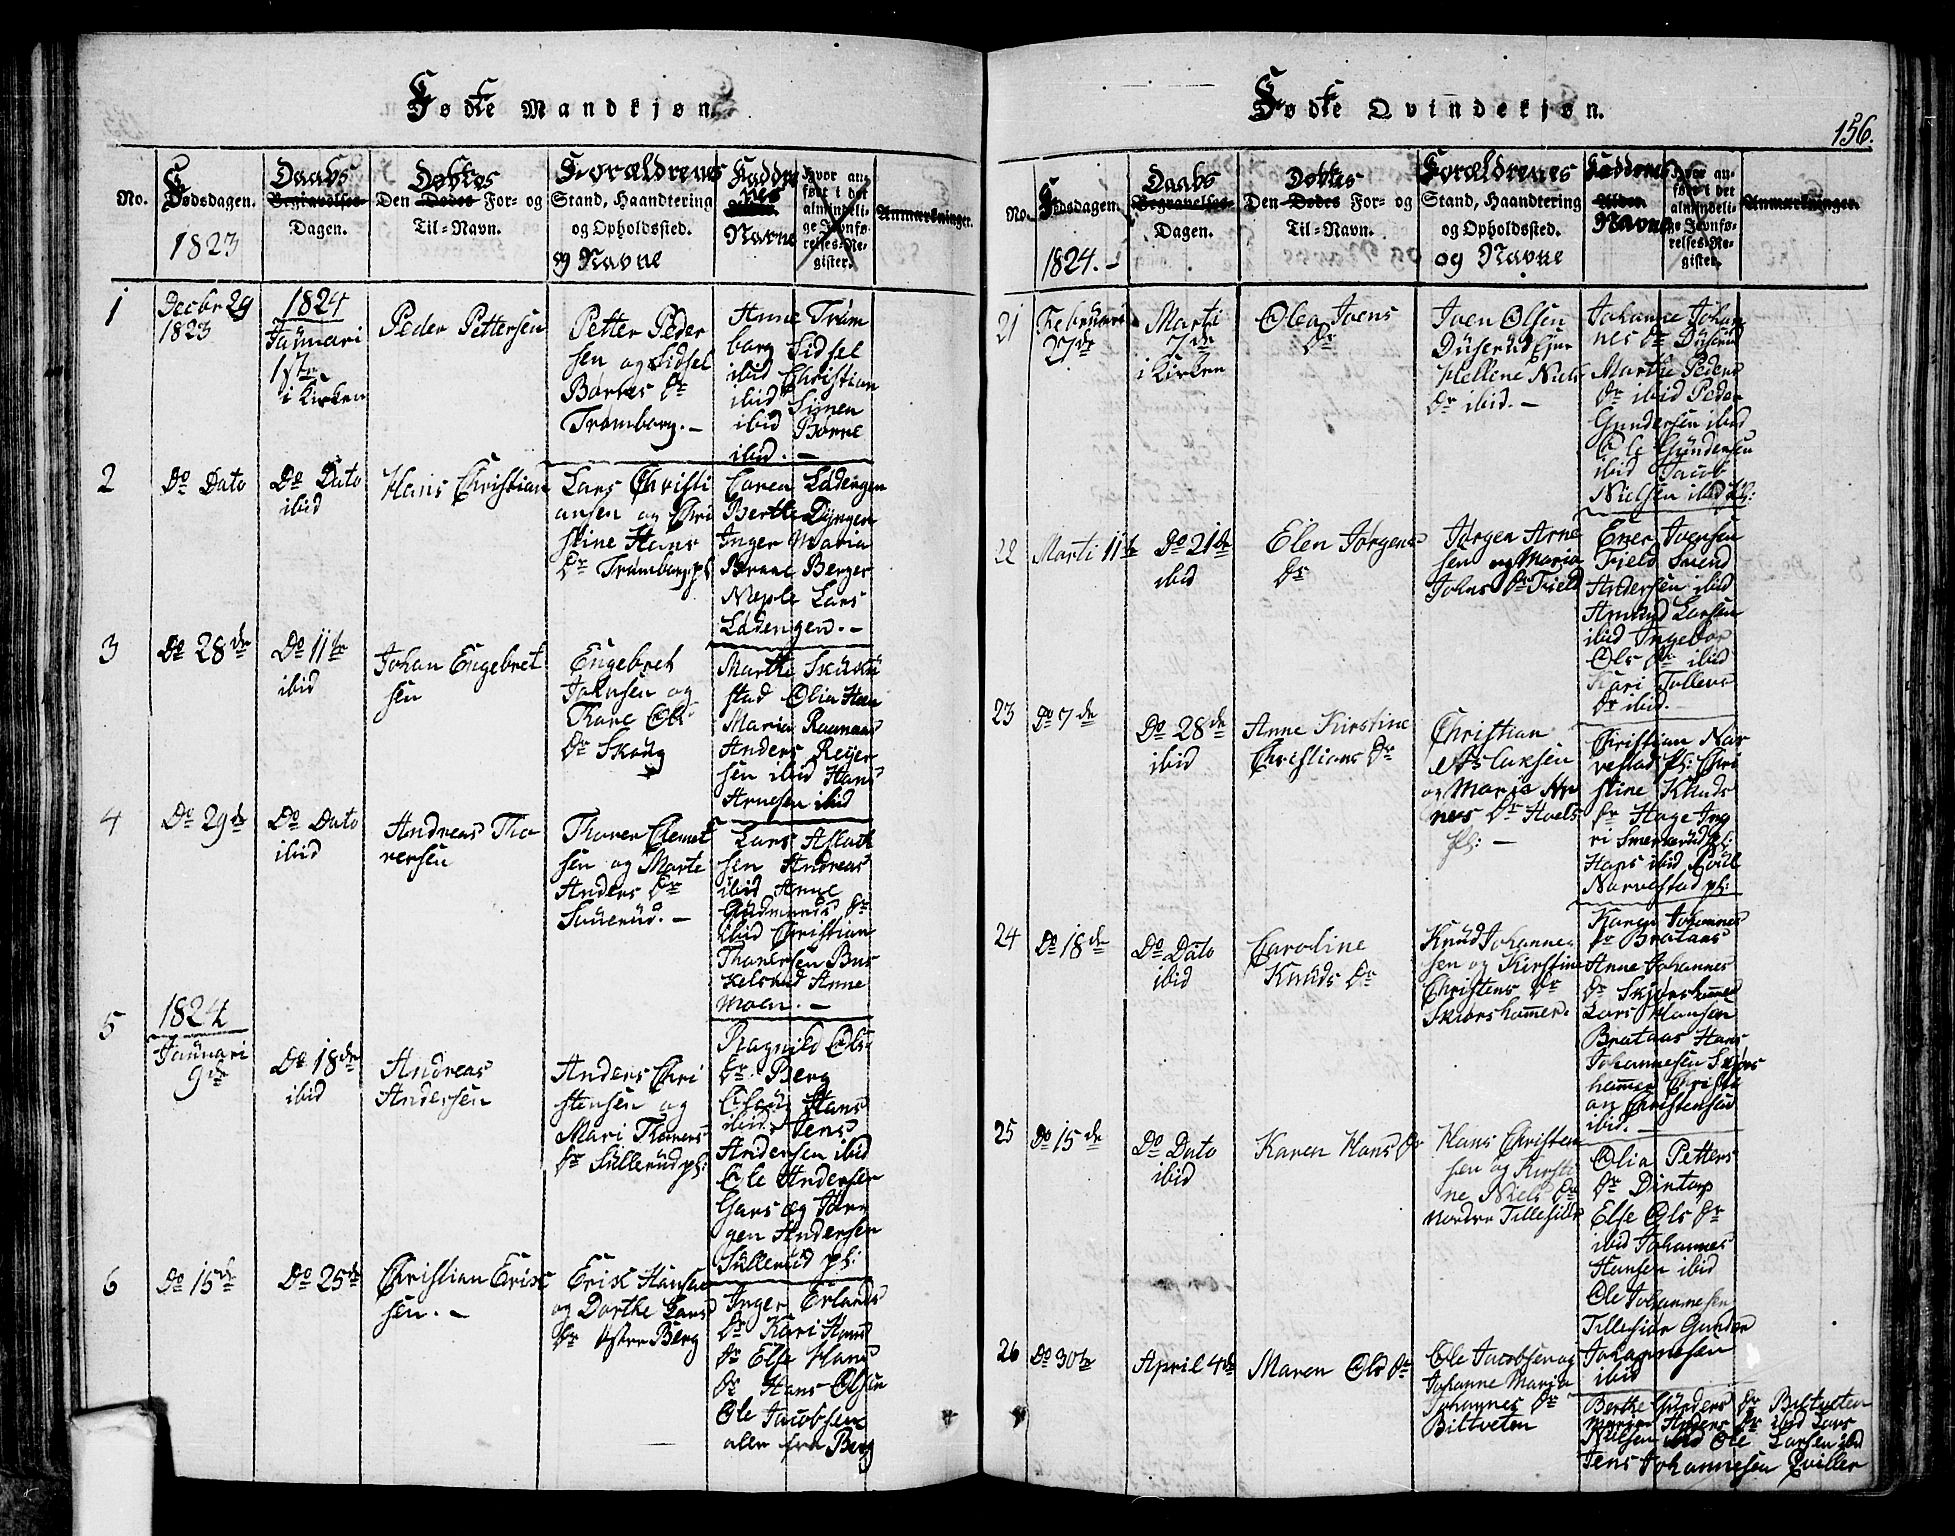 Fødte Mandkjøn
No.
Fødsdagen.
1823
Daabs
Begravelses-
Dagen.
Døbtes
Den Dødes For- og
Til-Navn.
Forældrenes
Stand, Haandtering
og Opholdssted.
og Navne
Faddernes
Navne
Hvor an-
føre i det
almindeli-
ge Jevnfø-
relses-Re-
gister.
Anmærkninger.
1
Decbr 29
1823
1824
Januari
1ste
i Kirken
Peder Pettersen
Petter Peder
sen og Sidsel
Borkes Dr
Tromborg. -
Anne Trøm
borg Sidsel
ibid Christian
ibid Simen
ibid Børre
ibid. -
2
Do Dato
Do Dato
ibid
Hans Christian
Lars Christi
ansen og Chri
stine Hans
Dr Tromborg pl
Caren Lädengen
Berthe Dynger
Inger Maria
Brane Berger
Neple Lars
Lädengen. -
3
Do 28de
Do 11te
ibid
Johan Engebret
sen
Engebret
Johnsen og
Kare Ols
Dr Skoug
Marthe Skakki
stad Olia Heen
Maria Raunaas
Anders Reyer
sen ibid Hans
Arnesen ibid
4
Do 29de
Do Dato
ibid
Andreas Tho
rersen
Thorer Clemet
sen og Marte
Anders Dr
Sauerud. -
Lars Aslack
sen Andreas
ibid Anne
Gudmunds Dr
ibid Christian
Thorersen Bus
kelsrud Anne
Moen. -
5
1824
Januari
9de
Do 18de
ibid
Andreas
Andersen
Anders Chri
stensen og
Mari Thorers
Dr Sullerud pl:
Ragnild Ols
Dr. Berg
Hans
ibid Jens
Andersen ibid
Ole Andersen
Gars og Jør
gen Andersen
Sullerud pl:
6
Do 15de
Do 25de
Christian Erik
sen. -
Erik Hansen
og Dorthe Lars
Dr Østre Berg
Inger Erlands
Dr Kari Hans
Dr Else Hans
Dr Hans Olsen
Ole Jacobsen
alle fra Berg
Fødte Qvindekjøn.
156.
No.
Fødsdagen.
1824. -
Daabs
Begravelses-
Dagen.
Døbtes
Den Dødes For- og
Til-Navn.
Forældrenes
Stand, Haandtering
og Opholdssted.
og Navne
Faddernes
Alder.
Navne
Hvor an-
føre i det
almindeli-
ge Jevnfø-
relses-Re-
gister.
Anmærkninger.
21
Februari
27de
Marti
7de
i Kirken
Olea Joens
Dr
Joen Olsen
Duserud Ejer
Helline Niels
Dr ibid. -
Johanne Johan
nes Dr Duserud
Marthe Peders
Dr ibid Peder
Gundersen ibid
Ole Gundersen
ibid Jacob
Nielsen ibid pl:
22
Marti 11te
Do 21de
ibid
Elen Jørgens
Dr
Jørgen Arne
sen og Maria
Johns Dr Field
Ener Joensen
Field Svend
Andersen ibid
Amund Larsen
ibid Ingebor
Ols Dr ibid
Kari Tollevs
Dr ibid. -
23
Do 7de
Do 28de
ibid
Anne Kirstine
Christians Dr
Christian
Aslaksen
og Maria Ar
nes Dr Hoels
pl: -
Christian Nar
vestad pl: Chri
stine Knuds
Dr Hage Ing
ri Smerrerud pl:
Hans ibid Poul
Narvestad pl:
24
Do 18de
Do Dato
ibid
Caroline
Knuds Dr
Knud Johannes
sen og Kirstine
Christens Dr
Skiørshammer.
Karen Johannes
Dr Brataas
Anne Johannes
Dr Skjørshammer
Lars Hansen
Brataas Hans
Johannesen Skjørs
hammer Christi
an Christensen
ibid. -
25
Do 15de
Do Dato
ibid
Karen Hans Dr
Hans Christen
sen og Kirsti
ne Niels Dr
Nordre Tillesille
Olia Petters
Dr Dintorp
Else Ols Dr
ibid Johannes
Hansen ibid
Ole Johannesen
Tillesiør Gunder
Johannesen
ibid
26
Do 30te
April 4de
Maren Ols Dr
Ole Jacobsen og
Johanne Maria
Johannes Dr
Biltveten
Berthe Gunders Dr Biltveten
Maria Anders Dr ibid Lars
Nielsen ibid Ole Larsen ibid
Jens Johannesen Qviller